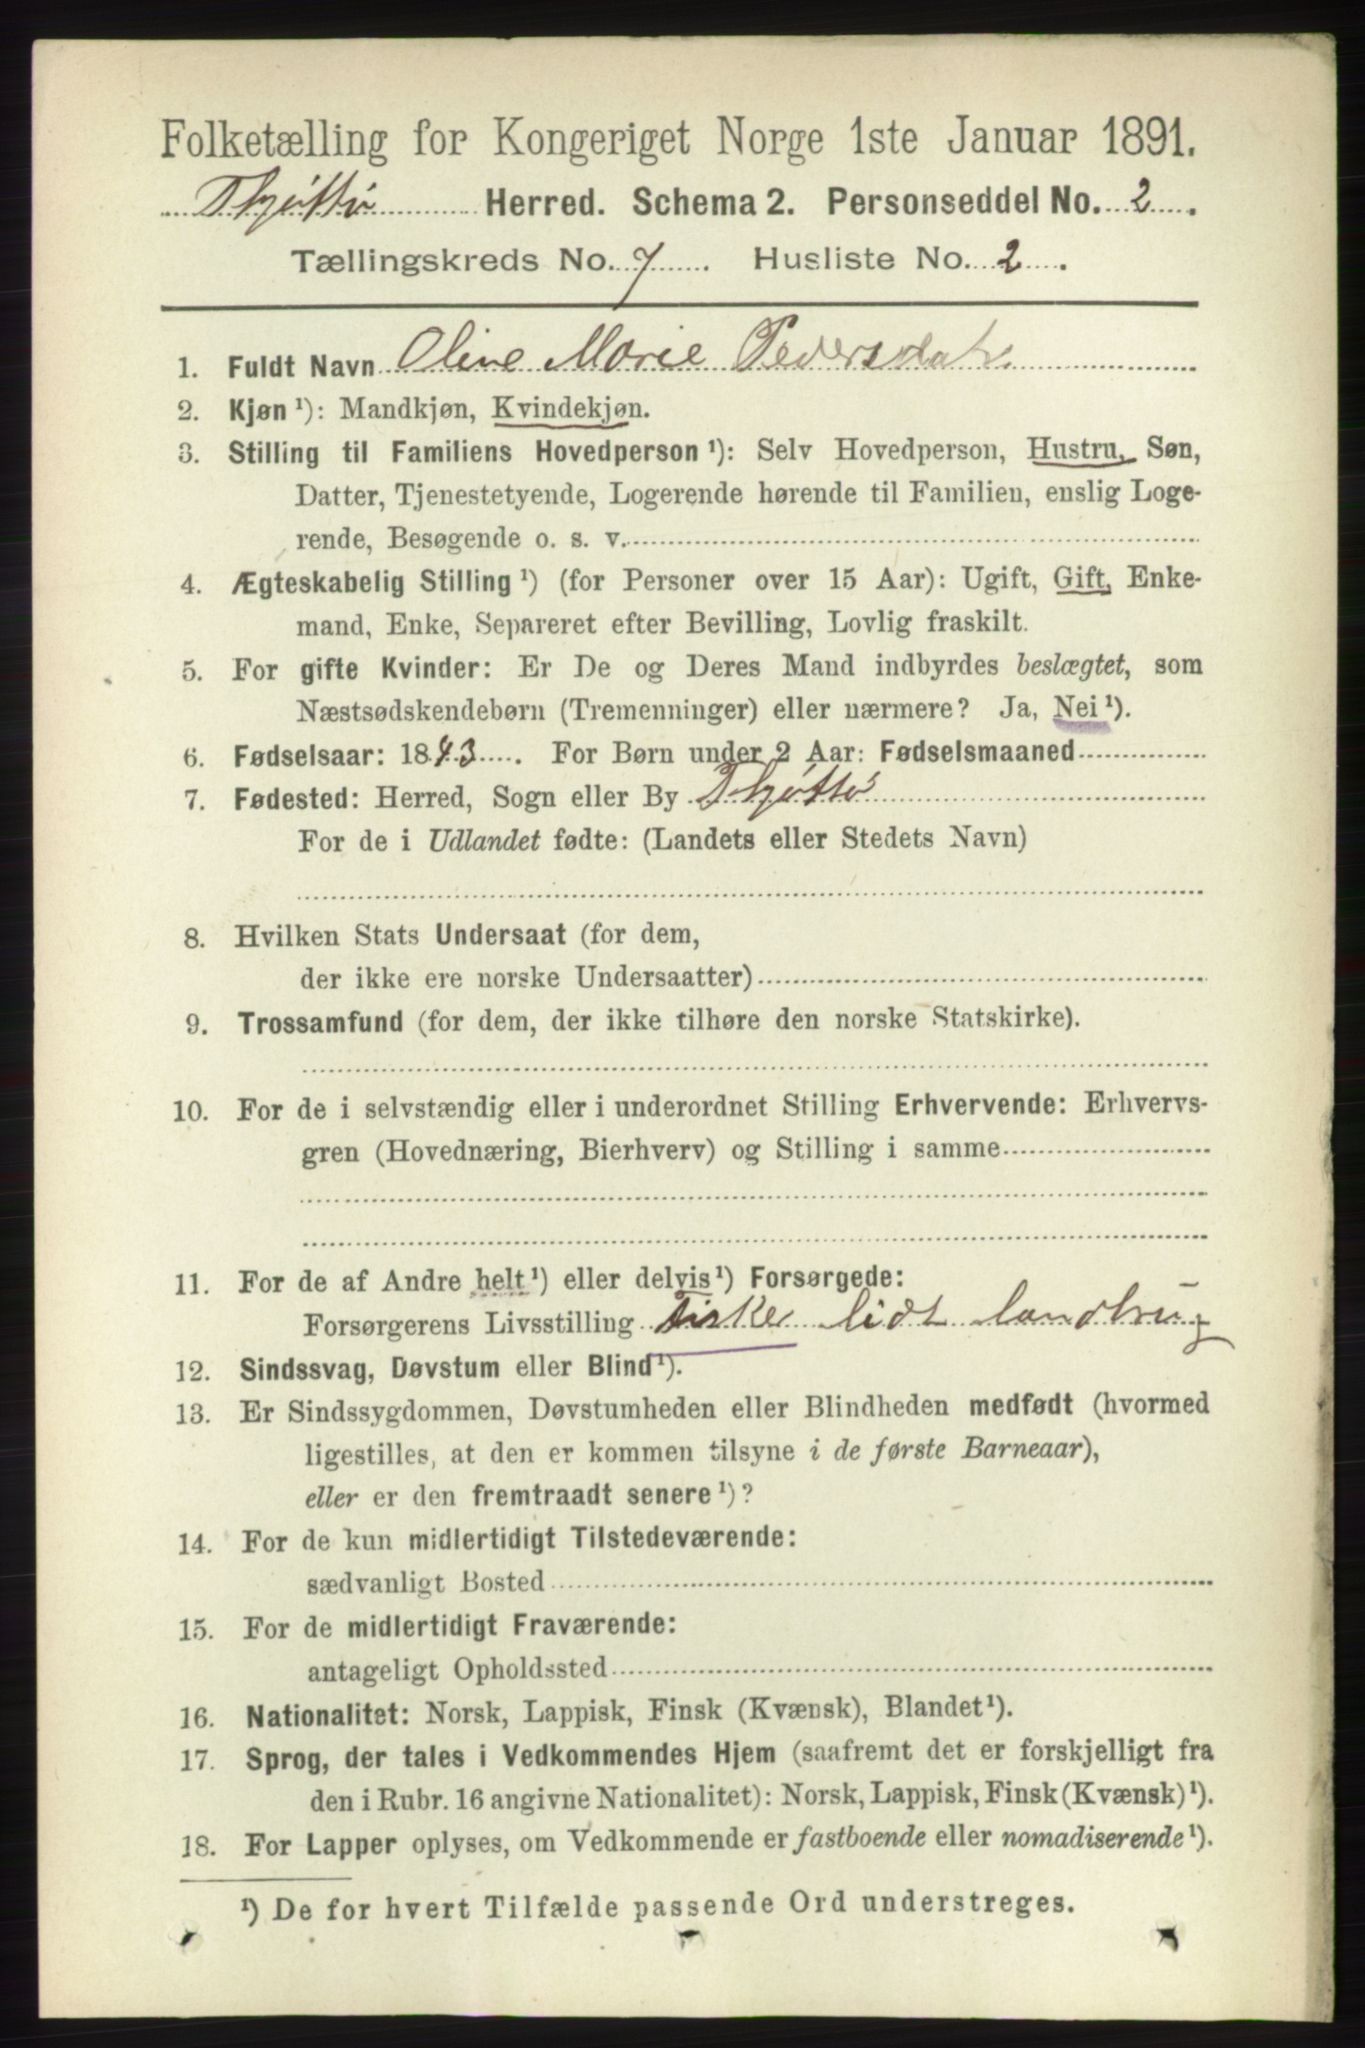 Folketælling for Kongeriget Norge 1ste Januar 1891.
Thjøttø Herred. Schema 2. Personseddel No. 2.
Tællingskreds No. 7. Husliste No. 2.
1. Fuldt Navn Oline Marie Pedersdatr
2. Kjøn ¹): Mandkjøn, Kvindekjøn.
3. Stilling til Familiens Hovedperson ¹): Selv Hovedperson, Hustru, Søn,
Datter, Tjenestetyende, Logerende hørende til Familien, enslig Loge-
rende, Besøgende o. s. v.
4. Ægteskabelig Stilling ¹) (for Personer over 15 Aar): Ugift, Gift, Enke-
mand, Enke, Separeret efter Bevilling, Lovlig fraskilt.
5. For gifte Kvinder: Er De og Deres Mand indbyrdes beslægtet, som
Næstsødskendebørn (Tremenninger) eller nærmere? Ja, Nei ¹).
6. Fødselsaar: 1843. For Børn under 2 Aar: Fødselsmaaned
7. Fødested: Herred, Sogn eller By Thjøttø
For de i Udlandet fødte: (Landets eller Stedets Navn)
8. Hvilken Stats Undersaat (for dem,
der ikke ere norske Undersaatter)
9. Trossamfund (for dem, der ikke tilhøre den norske Statskirke).
10. For de i selvstændig eller i underordnet Stilling Erhvervende: Erhvervs-
gren (Hovednæring, Bierhverv) og Stilling i samme
11. For de af Andre helt ¹) eller delvis ¹) Forsørgede:
Forsørgerens Livsstilling Fisker lidt landbrug
12. Sindssvag, Døvstum eller Blind ¹).
13. Er Sindssygdommen, Døvstumheden eller Blindheden medfødt (hvormed
ligestilles, at den er kommen tilsyne i de første Barneaar),
eller er den fremtraadt senere ¹)?
14. For de kun midlertidigt Tilstedeværende:
sædvanligt Bosted
15. For de midlertidigt Fraværende:
antageligt Opholdssted
16. Nationalitet: Norsk, Lappisk, Finsk (Kvænsk), Blandet ¹).
17. Sprog, der tales i Vedkommendes Hjem (saafremt det er forskjelligt fra
den i Rubr. 16 angivne Nationalitet): Norsk, Lappisk, Finsk (Kvænsk) ¹).
18. For Lapper oplyses, om Vedkommende er fastboende eller nomadiserende ¹).
¹) De for hvert Tilfælde passende Ord understreges.